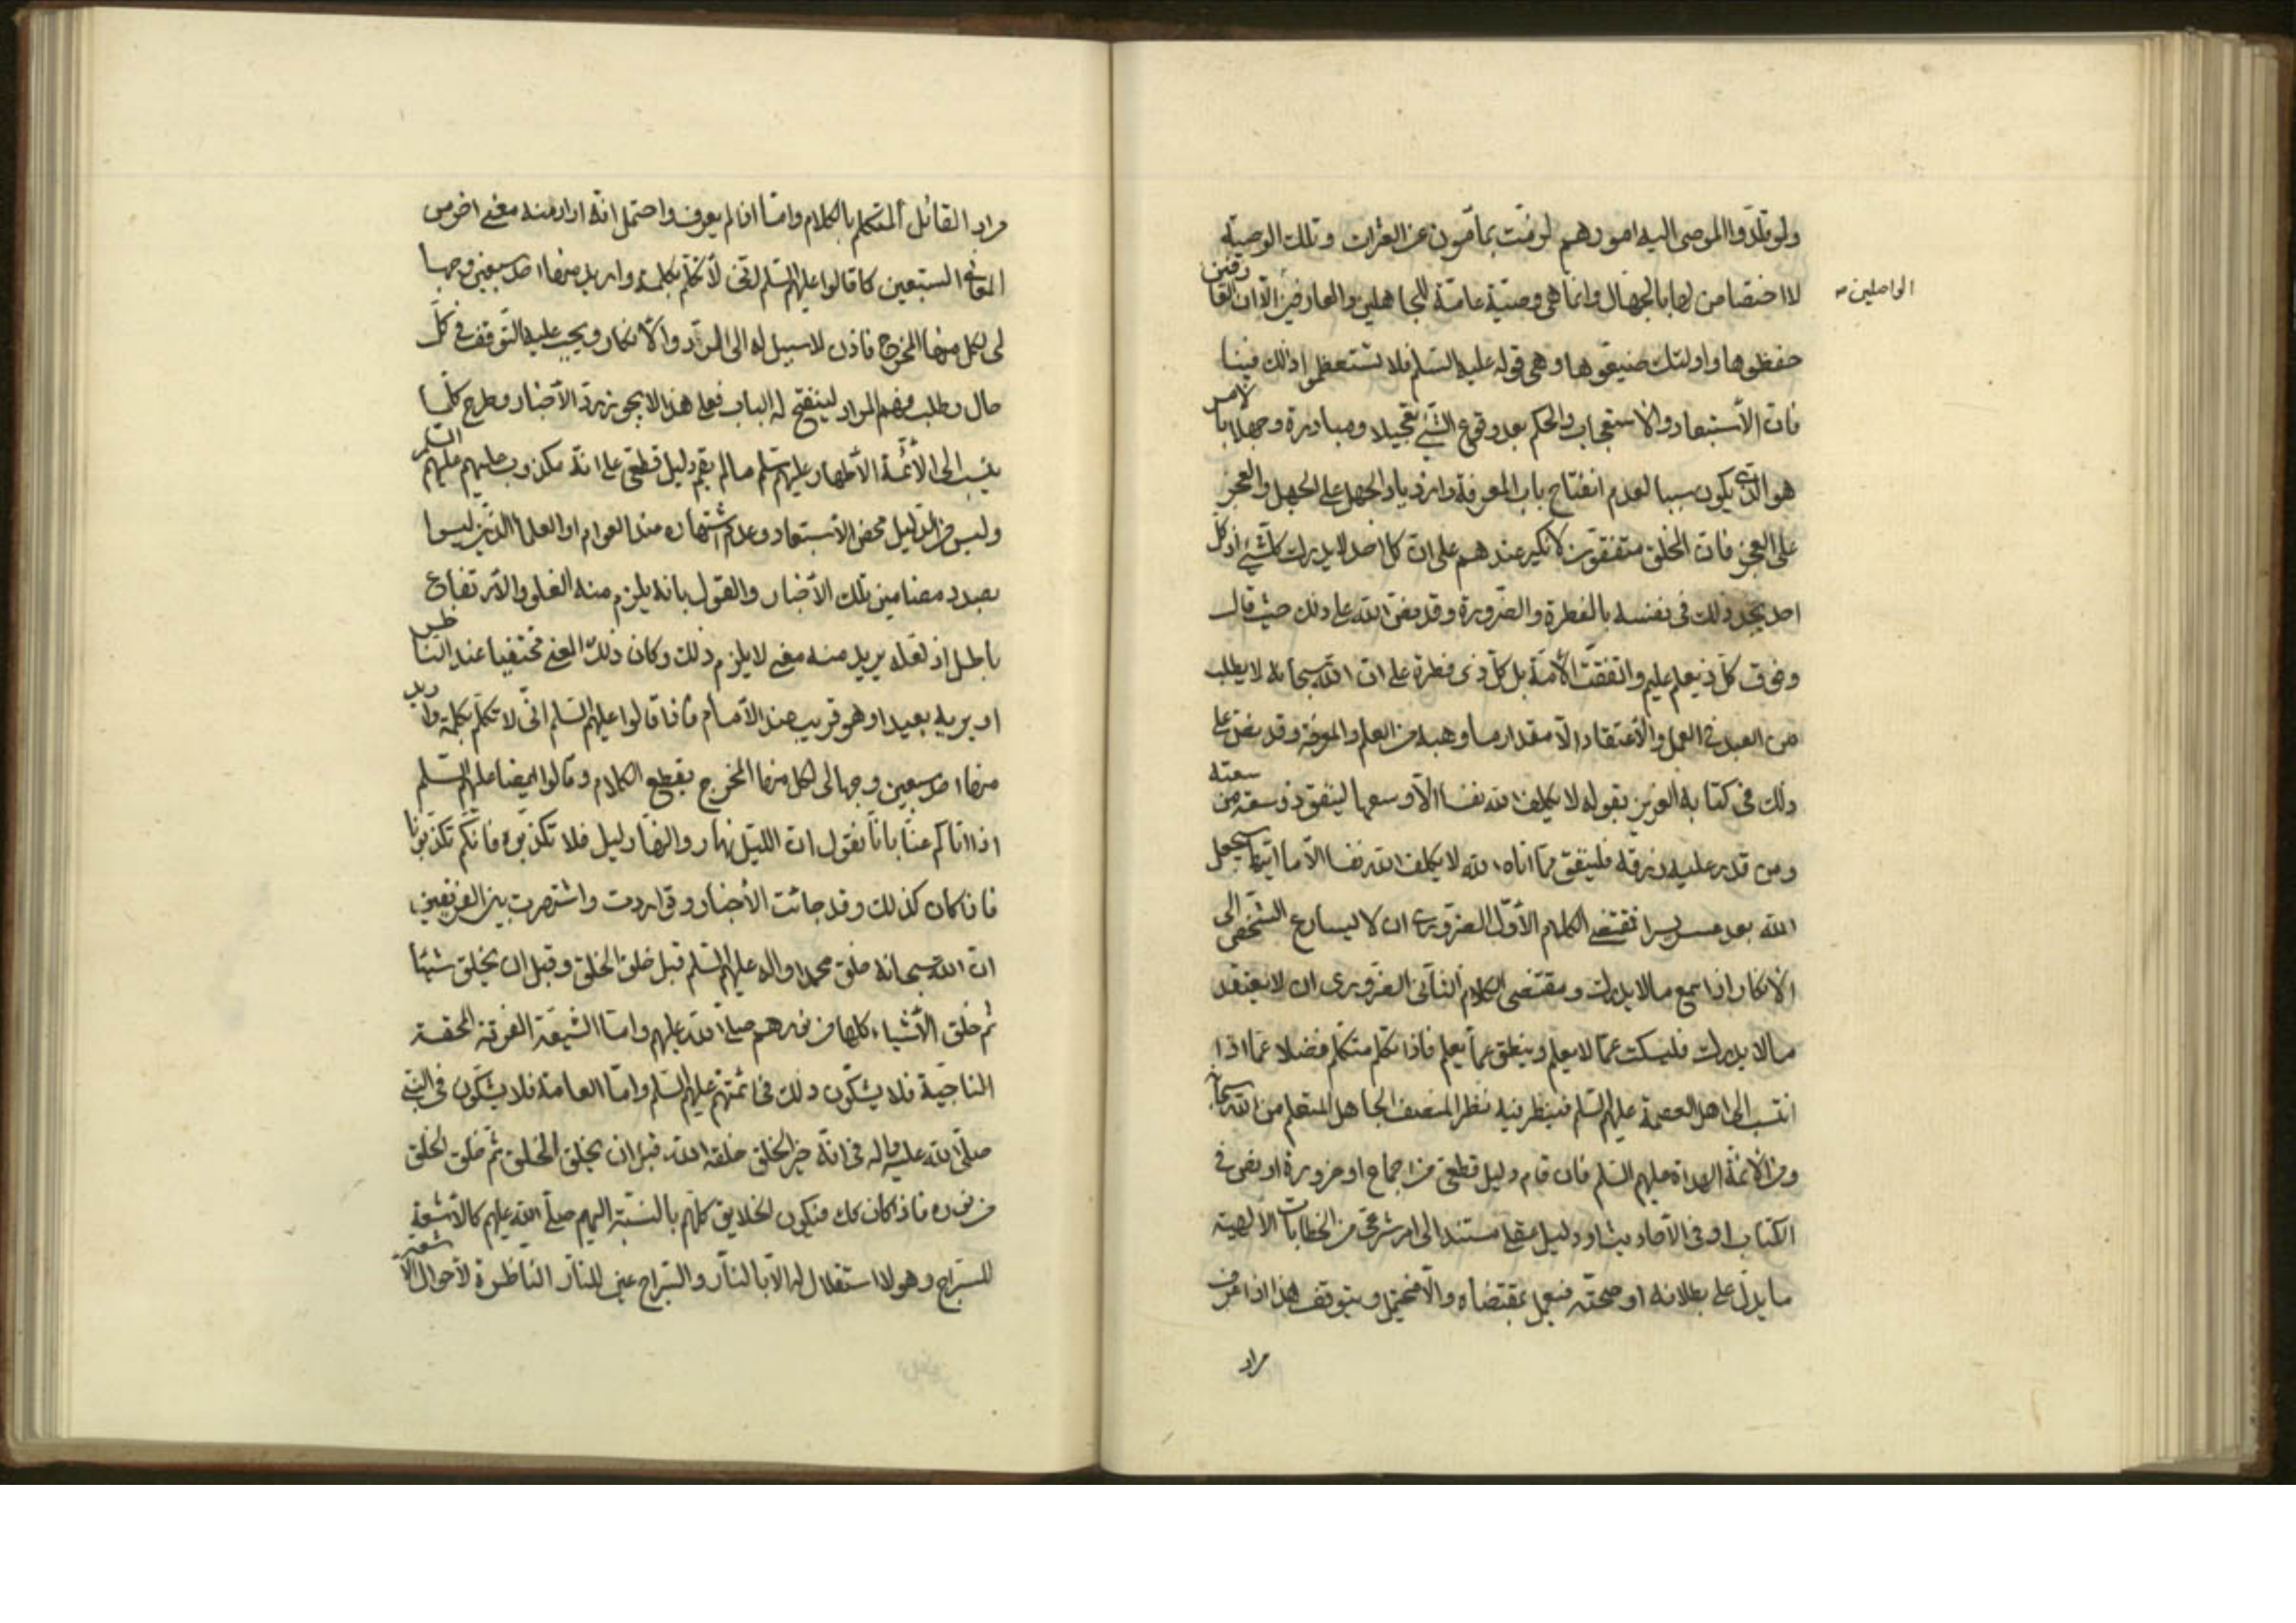 ولو قلّدوا الموصى اليه امورهم لزمّت بمأمون عن العثرات وتلك الوصيّة
لا اختصاص لها بالجهال وانّما هي وصيّة عامّة للجاهلين والعارفين الّا ان العارفين
الواصلين صح
حفظوها واولئك ضيّعوها وهي قوله عليه السّلم فلا تستعظموا ذلك فينا
فان الأستبعاد والاستعجاب والحكم بعد وقوع الشيء تعجيلا ومبادرة وجهلا بالامر
هو الّذي يكون سببا لعدم انفتاح باب المعرفة وازدياد الجهل على الجهل والعجز
على العجز فان الخلق متفقون لا نكير عندهم على ان كل احد لا يدرك كلّ شيء اذ كلّ
احد يجد ذلك في نفسه بالفطرة والضّرورة وقد نصّ الله على ذلك حيث قال
وفوق كلّ ذي علم عليم واتفقت الأمّة بل كلّ ذي فطرة على ان الله سبحانه لا يطلب
من العبد في العمل والأعتقاد الّا مقدار ما وهبه من العلم والمعرفة وقد نصّ على
ذلك في كتابه العزيز بقوله لا يكلف الله نفسا الّا وسعها لينفق ذو سعة من سعته
ومن قدر عليه رزقه فلينفق ممّا اتاه الله لا يكلف الله نفسا الّا ما اتيها سيجعل
الله بعد عسر يسرا فمقتضى الكلام الأوّل الضروري ان لا يسارع الشخص الى
الأنكار اذا سمع ما لا يدرك ومقتضى الكلام الثاني الضّروري ان لا يعتقد
ما لا يدرك فليسكت عمّا لا يعلم وينطق عمّا يعلم فاذا تكلّم متكلّم فضلا عمّا اذا
انتسب الى اهل العصمة عليهم السّلم فينظر فيه نظر المنصف الجاهل المتعلم من الله سبحانه
ومن الأئمّة الهداة عليهم السّلم فان قام دليل قطعيّ من اجماع او ضرورة او نص في
الكتاب او في الأحاديث او دليل عقلي مستند الى امر شرعيّ من الخطابات الألهيّة
ما يدلّ على بطلانه او صحّته فيعمل بمقتضاه والّا فيحتمل ويتوقف هذا اذا عرف
مراد
مراد القائل المتكلم بالكلام وامّا اذا لم يعرف واحتمل انّه اراد منه معنى اخر من
المعاني السّبعين كما قالوا عليهم السّلم انّي لأتكلّم بكلمة واريد منها احد سبعين وجها
لي لكل منها المخرج فاذن لا سبيل له الى الردّ والأنكار ويجب عليه التّوقف في كلّ
حال وطلب فهم المراد لينفتح له الباب فعلى هذا لا يجوز ردّ الأخبار وطرح كلّما
ينسب الى الأئمّة الأطهار عليهم السّلم ما لم يقم دليل قطعيّ على انّه مكذوب عليهم عليهم السّلم
وليس من الدّليل محض الأستبعاد وعدم اشتهاره عند العوام او العلماء الّذين ليسوا
بصدد مضامين تلك الأخبار والقول بانه يلزم منه الغلو والأرتفاع
باطل اذ لعلّه يريد منه معنى لا يلزم ذلك وكان ذلك المعنى مختفيا عند الناظر
او يريه بعيدا وهو قريب عند الأمام فاذا قالوا عليهم السّلم انّي لاتكلّم بكلمة واريد
منها احد سبعين وجها لي لكل منها المخرج بقطع الكلام وقالوا ايضا عليهم السّلم
اذا اتاكم عنّا بانّا نقول ان اللّيل نهار والنهار ليل فلا تكذّبوه فانّكم تكذّبونا
فاذا كان كذلك وقد جائت الأخبار وتواردت واشتهرت بين الفريقين
ان الله سبحانه خلق محمدا واله عليهم السّلم قبل خلق الخلق وقبل ان يخلق شيئا
ثم خلق الأشياء كلها من نورهم صلّى الله عليهم وامّا الشيعة الفرقة المحقة
الناجية فلا يشكّون ذلك في ائمّتهم عليهم السّلم وامّا العامة فلا يشكّون في النّبي
صلّى الله عليه واله في انّه خير الخلق خلقه الله قبل ان يخلق الخلق ثمّ خلق الخلق
من نوره فاذا كان كك فيكون الخلايق كلّهم بالنّسبة اليهم صلّى الله عليهم كالأشعة
للسّراج وهو لا استقلال لها الّا بالنار والسّراج عين للنّار الناظرة لأحوال الأشعة